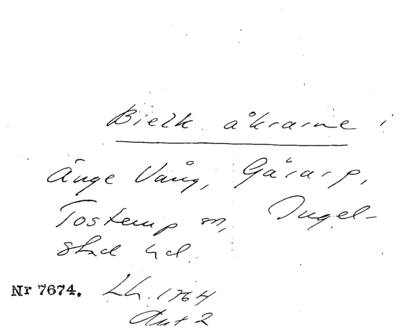 Bielk åkrarne i
Änge Vång, Gårarp,
Tosterup sn, Ingel-
stad hd.
Nr 7674. Lh. 1764
Akt 2